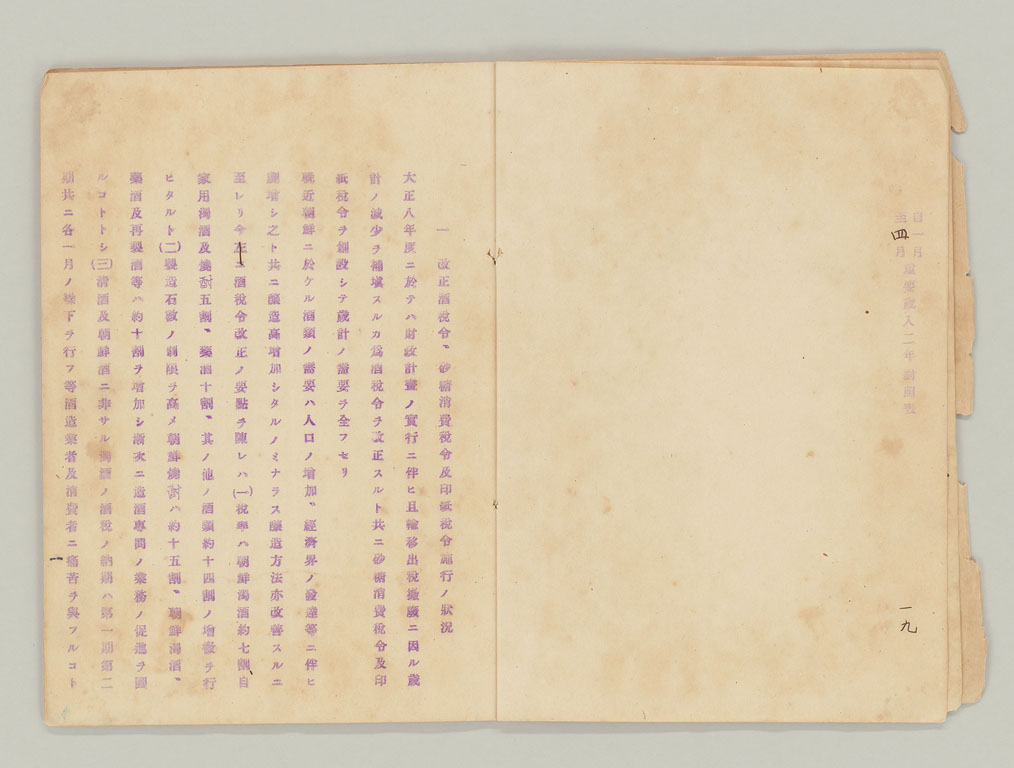 自一月
至四月
重要歳入二年對照表
一九
一 改正酒稅令、砂糖消費稅令及印紙稅令施行ノ狀況
大正八年度ニ於テハ財政計畫ノ實行ニ伴ヒ且輸移出稅撤廢ニ因ル歲
計ノ減少ヲ補塡スルカ爲酒稅令ヲ改正スルト共ニ砂糖消費稅令及印
紙稅令ヲ創設シテ歲計ノ需要ヲ全フセリ
輓近朝鮮ニ於ケル酒類ノ需要ハ人口ノ增加、經濟界ノ發達等ニ伴ヒ
激增シ之ト共ニ釀造高增加シタルノミナラス釀造方法亦改善スルニ
至レリ今 ニ酒稅令改正ノ要點ヲ陳レハ(一)稅率ハ朝鮮濁酒約七割自
家用濁酒及燒酎五割、藥酒十割、其ノ他ノ酒類約十四割ノ增徵ヲ行
ヒタルト(二)製造石數ノ制限ヲ高メ朝鮮燒酎ハ約十五割、朝鮮濁酒、
藥酒及再製酒等ハ約十割ヲ增加シ漸次ニ造酒專門ノ業務ノ促進ヲ圖
ルコトトシ(三)淸酒及朝鮮酒ニ非サル濁酒ノ酒稅ノ納期ハ第一期第二
期共ニ各一月ノ繰下ヲ行フ等酒造業者及消費者ニ痛苦ヲ與フルコト